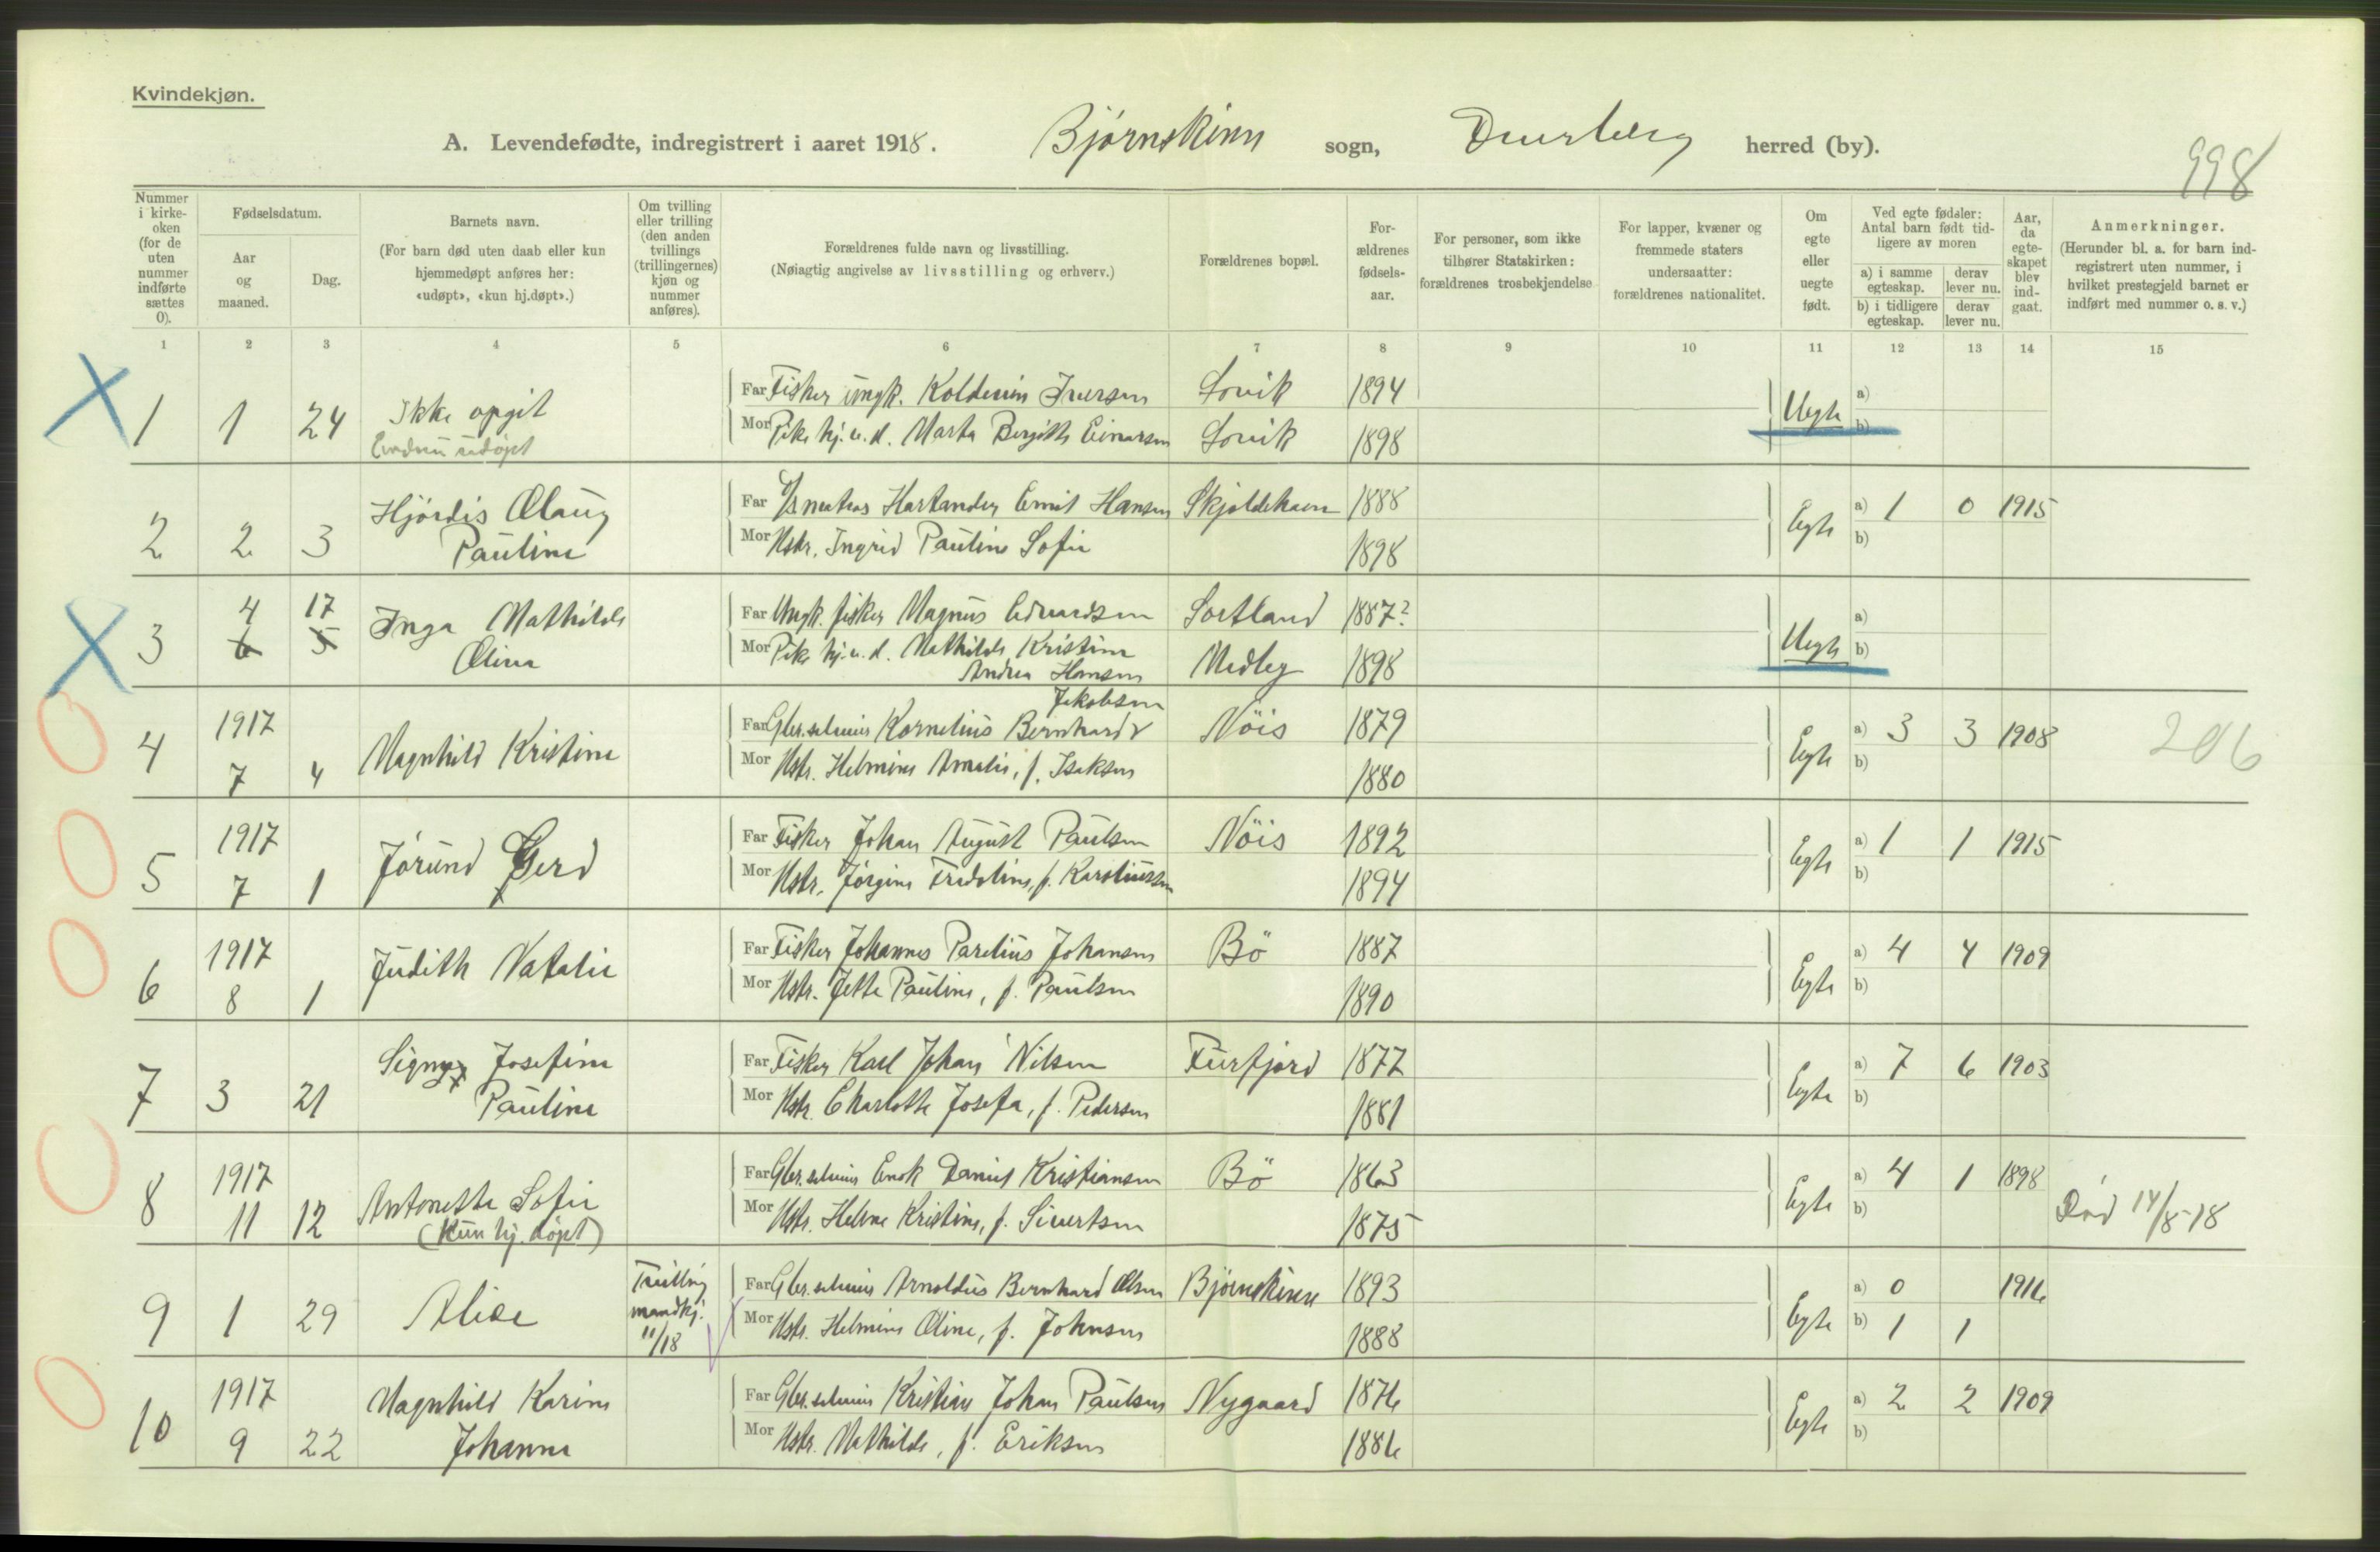 Kvindekjøn.
A. Levendefødte, indregistrert i aaret 1918. Bjørnskinn sogn, Dverberg herred (by).
998
Nummer i kirke-oken (for de uten nummer indførte sættes 0).
Fødselsdatum.
Aar og maaned.
Dag.
Barnets navn.
(For barn død uten daab eller kun hjemmedøpt anføres her: «udøpt», «kun hj.døpt».)
Om tvilling eller trilling (den anden tvillings (trillingernes) kjøn og nummer anføres).
Forældrenes fulde navn og livsstilling.
(Nøiagtig angivelse av livsstilling og erhverv.)
Forældrenes bopæl.
For-ældrenes fødsels-aar.
For personer, som ikke tilhører Statskirken: forældrenes trosbekjendelse
For lapper, kvæner og fremmede staters undersaatter: forældrenes nationalitet.
Om egte eller uegte født.
Ved egte fødsler: Antal barn født tid-ligere av moren
a) i samme egteskap. derav lever nu.
b) i tidligere egteskap. derav lever nu.
Aar, da egte-skapet blev ind-gaat.
Anmerkninger.
(Herunder bl. a. for barn ind-registrert uten nummer, i hvilket prestegjeld barnet er indført med nummer o. s. v.)
1 2 3 4 5 6 7 8 9 10 11 12 13 14 15
1 1 24 Ikke opgit Far Fisker ungk. Koldevin Iversen Sovik 1894 Uegte a)
Endnu udøpt Mor Pike hj. u. d. Marta Bergitte Einarsen Sovik 1898 b)
2 2 3 Hjördis Olaug Far Hartander Emil Hansen Skjoldehavn 1888 Egte a) 1 0 1915
Pauline Mor Hstr. Ingrid Pauline Sofie 1898 b)
3 4 17 Inga Mathilde Far Ungk. fisker Magnus Edvardsen Sortland 1887? Uegte a)
6 5 Oline Mor Pike hj. u. d. Mathilde Kristine Andrea Hansen Medby 1898 b)
4 1917 Magnhild Kristine Far Gbr.selveier Kornelius Bernhard Jakobsen Nöis 1879 Egte a) 3 3 1908 206
7 4 Mor Hstr. Helmine Amalie, f. Isaksen 1880 b)
5 1917 Jórund Gerd Far Fisker Johan August Paulsen Nöis 1892 Egte a) 1 1 1915
7 1 Mor Hstr. Jörgine Fredoline, f. Karoliussen 1894 b)
6 1917 Judith Natalie Far Fisker Johannes Parelius Johansen Bö 1887 Egte a) 4 4 1909
8 1 Mor Hstr. Jette Pauline, f. Paulsen 1890 b)
7 3 21 Signy Josefine Far Fisker Karl Johan Nilsen Furfjord 1877 Egte a) 7 6 1903
Pauline Mor Hstr. Charlotte Josefa, f. Pedersen 1881 b)
8 1917 Antonette Sofie Far Gbr.selveier Enok Daniel Kristiansen Bö 1863 Egte a) 4 1 1898
11 12 (Kun hj. døpt) Mor Hstr. Helene Kristine, f. Sivertsen 1875 b) Död 14/8-18
9 1 29 Alice Tvilling mandkj. 11/18 Far Gbr.selveier Arnoldus Bernhard Olsen Bjørnskinn 1893 Egte a) 0 1916
Mor Hstr. Helmine Oline, f. Johnsen 1888 b) 1 1
10 1917 Magnhild Karine Far Gbr.selveier Kristian Johan Paulsen Nygaard 1876 Egte a) 2 2 1909
9 22 Johanne Mor Hstr. Mathilde, f. Eriksen 1886 b)